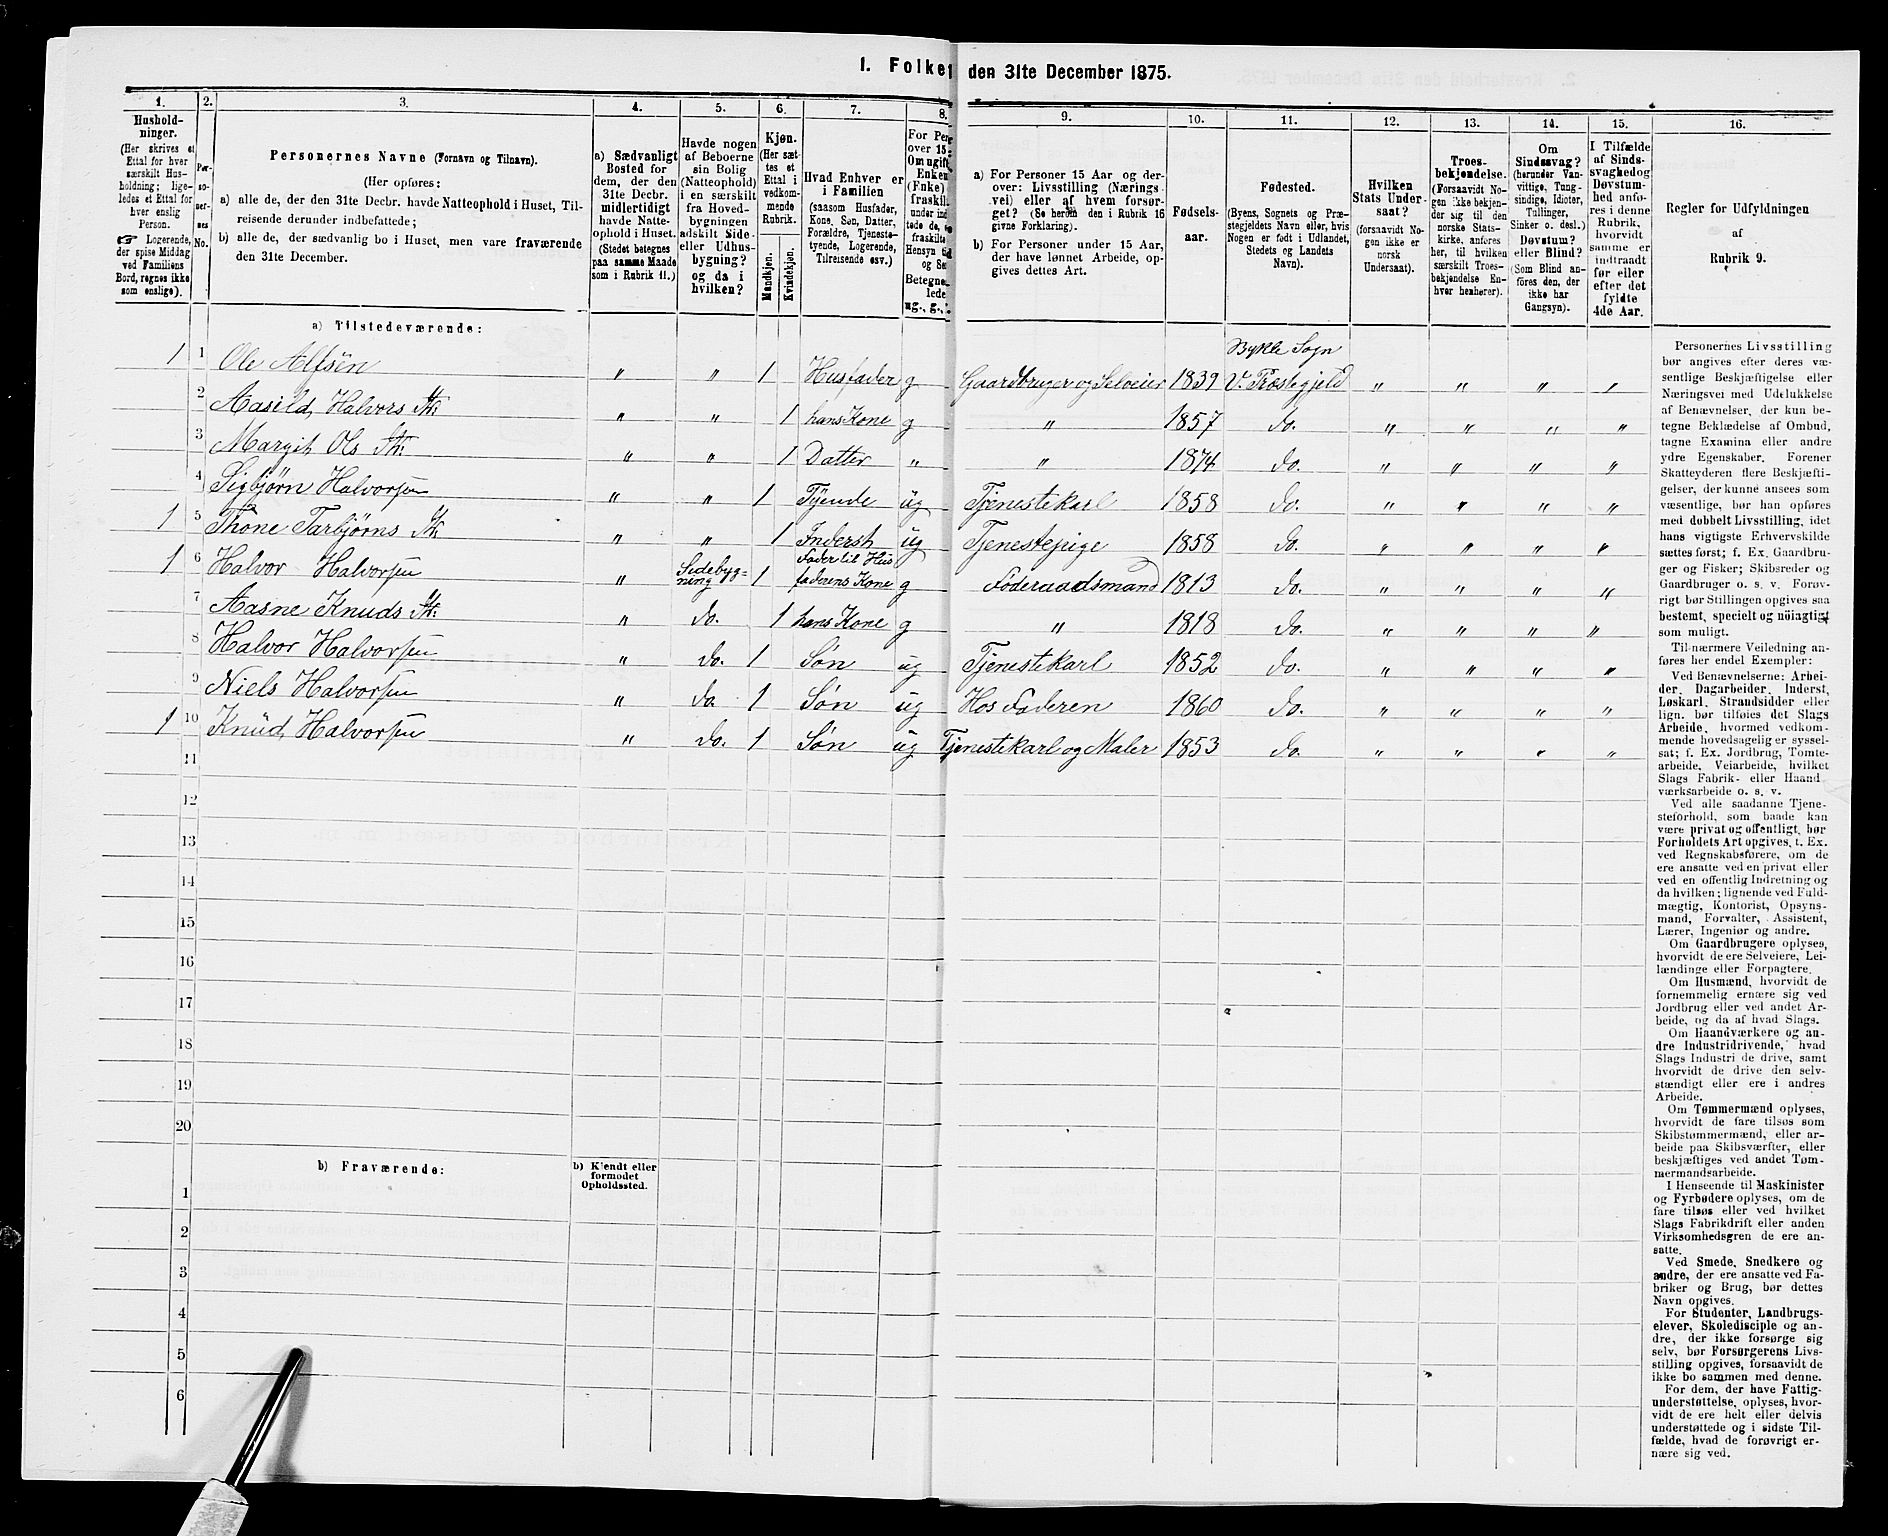 I. Folket den 31te December 1875.
1.
Hushold-
ninger.
(Her skrives et
Ettal for hver
særskilt Hus-
holdning; lige-
ledes et Ettal for
hver enslig
Person.
☞ Logerende,
der spise Middag
ved Familiens
Bord, regnes ikke
som enslige).
2.
Per-
so-
ner-
nes
No.
3.
Personernes Navne (Fornavn og Tilnavn).
(Her opføres:
a) alle de, der den 31te Decbr. havde Natteophold i Huset, Til-
reisende derunder indbefattede;
b) alle de, der sædvanlig bo i Huset, men vare fraværende
den 31te December.
4.
a) Sædvanligt
Bosted for
dem, der den
31te Decbr.
midlertidigt
havde Natte-
ophold i Huset.
(Stedet betegnes
paa samme Maade
som i Rubrik 11.)
5.
Havde nogen
af Beboerne
sin Bolig
(Natteophold)
i en særskilt
fra Hoved-
bygningen
adskilt Side-
eller Udhus-
bygning?
og da i
hvilken?
6.
Kjøn.
(Her sæt-
tes et
Ettal i
vedkom-
mende
Rubrik.
Mandkjøn.
Kvindekjøn.
7.
Hvad Enhver er
i Familien
(saasom Husfader,
Kone, Søn, Datter,
Forældre, Tjeneste-
tyende, Logerende,
Tilreisende osv.)
8.
For Per
over 15
Om ugift
Enken
(Fnke)
fraskil
under ind
tede de, f
fraskilte
Hensyn
og Se
Betegne
lede
ug., g.,
9.
a) For Personer 15 Aar og der-
over: Livsstilling (Nærings-
vei) eller af hvem forsør-
get? (Se herom den i Rubrik 16
givne Forklaring).
b) For Personer under 15 Aar,
der have lønnet Arbeide, op-
gives dettes Art.
10.
Fødsels-
aar.
11.
Fødested.
(Byens, Sognets og Præ-
stegjeldets Navn eller, hvis
Nogen er født i Udlandet,
Stedets og Landets
Navn).
12.
Hvilken
Stats Under-
saat?
(forsaavidt No-
gen ikke er
norsk
Undersaat).
13.
Troes-
bekjendelse.
(Forsaavidt No-
gen ikke bekjen-
der sig til den
norske Stats-
kirke, anføres
her, til hvilken
særskilt Troes-
bekjendelse En-
hver henhører).
14.
Om
Sindssvag?
(herunder Van-
vittige, Tung-
sindige, Idioter,
Tullinger,
Sinker o. desl.)
Døvstum?
eller Blind?
(Som Blind an-
føres den, der
ikke har
Gangsyn).
15.
I Tilfælde
af Sinds-
svaghed og
Døvstum-
hed anfø-
res i denne
Rubrik,
hvorvidt
samme er
indtraadt
før eller
efter det
fyldte
4de Aar.
16.
Regler for Udfyldningen
af
Rubrik 9.
a) Tilstedeværende:
1 1 Ole Alfsen " " 1 Husfader g Gaardbruger og Seleier 1839 Bykle Sogn V. Præstegjeld " " " "
2 Aasild Halvors Dtr. " " 1 hans Kone g " 1857 do. " " " "
3 Margit Ols Dtr. " " 1 Datter " " 1874 do. " " " "
4 Sigbjørn Halvorsen " " 1 Tyende ug Tjenestekarl 1858 do. " " " "
1 5 Thone Tarbjørns Dtr. " " 1 Inderst ug Tjenestepige 1858 do. " " " "
1 6 Halvor Halvorsen " Sidebyg=ning 1 Fader til Husfaderens Kone g Føderaadsmand 1813 do. " " " "
7 Aasne Knuds Dtr. " do. 1 hans Kone g " 1818 do. " " " "
8 Halvor Halvorsen " do. 1 Søn ug Tjenestekarl 1852 do. " " " "
9 Niels Halvorsen " do. 1 Søn ug Hos Faderen 1860 do. " " " "
1 10 Knud Halvorsen " do. 1 Søn ug Tjenestekarl og Maler 1853 do. " " " "
11
12
13
14
15
16
17
18
19
20
b) Fraværende:
b) Kjendt eller
formodet
Opholdssted.
1
2
3
4
5
6
Personernes Livsstilling
bør angives efter deres væ-
sentlige Beskjæftigelse eller
Næringsvei med Udelukkelse
af Benævnelser, der kun be-
tegne Beklædelse af Ombud,
tagne Examina eller andre
ydre Egenskaber. Forener
Skatteyderen flere Beskjæfti-
gelser, der kunne ansees som
væsentlige, bør han opføres
med dobbelt Livsstilling, idet
hans vigtigste Erhvervskilde
sættes først; f. Ex. Gaardbru-
ger og Fisker; Skibsreder og
Gaardbruger o. s. v. Forøv-
rigt bør Stillingen opgives saa
bestemt, specielt og nøiagtigt
som muligt.
Til nærmere Veiledning an-
føres her endel Exempler:
Ved Benævnelserne: Arbei-
der, Dagarbeider, Inderst,
Løskarl, Strandsidder eller
lign. bør tilføies det Slags
Arbeide, hvormed vedkom-
mende hovedsagelig er syssel-
sat; f. Ex. Jordbrug, Tomte-
arbeide, Veiarbeide, hvilket
Slags Fabrik- eller Haand
værksarbeide o. s. v.
Ved alle saadanne Tjene-
steforhold, som baade kan
være privat og offentligt, bør
Forholdets Art opgives, t. Ex.
ved Regnskabsførere, om de
ere ansatte ved en privat eller
ved en offentlig Indretning og
da hvilken; lignende ved Fuld-
mægtig, Kontorist, Opsyns-
mand, Forvalter, Assistent,
Lærer, Ingeniør og andre.
Om Gaardbrugere oplyses,
hvorvidt de ere Selveiere, Lei-
lændinge eller Forpagtere.
Om Husmænd, hvorvidt de
fornemmelig ernære sig ved
Jordbrug eller ved andet Ar-
beide, og da af hvad Slags.
Om Haandværkere og an-
dre Industridrivende, hvad
Slags Industri de drive, samt
hvorvidt de drive den selv-
stændigt eller ere i andres
Arbeide.
Om Tømmermænd oplyses,
hvorvidt de fare tilsøs som
Skibstømmermænd, eller ar-
beide paa Skibsværfter, eller
beskjæftiges ved andet Tøm-
mermandsarbeide.
I Henseende til Maskinister
og Fyrbødere oplyses, om de
fare tilsøs eller ved hvilket
Slags Fabrikdrift eller anden
Virksomhedsgren de ere an-
satte.
Ved Smede, Snedkere og
andre, der ere ansatte ved Fa-
briker og Brug, bør dettes
Navn opgives.
For Studenter, Landbrugs-
elever, Skoledisciple og an-
dre, der ikke forsørge sig
selv, bør Forsørgerens Livs-
stilling opgives, forsaavidt de
ikke bo sammen med denne.
For dem, der have Fattig-
understøttelse, oplyses, hvor-
vidt de ere helt eller delvis
understøttede og i sidste Til-
fælde, hvad de forøvrigt er-
nære sig ved.